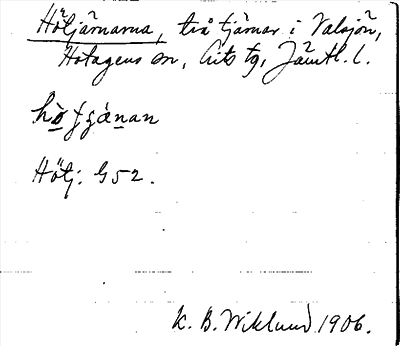 Hötjärnarna, två tjärnar i Valsjön,
Hotagens sn, Lits tg, Jämtl. l.
Hötj: G52.
K. B. Wiklund 1906.